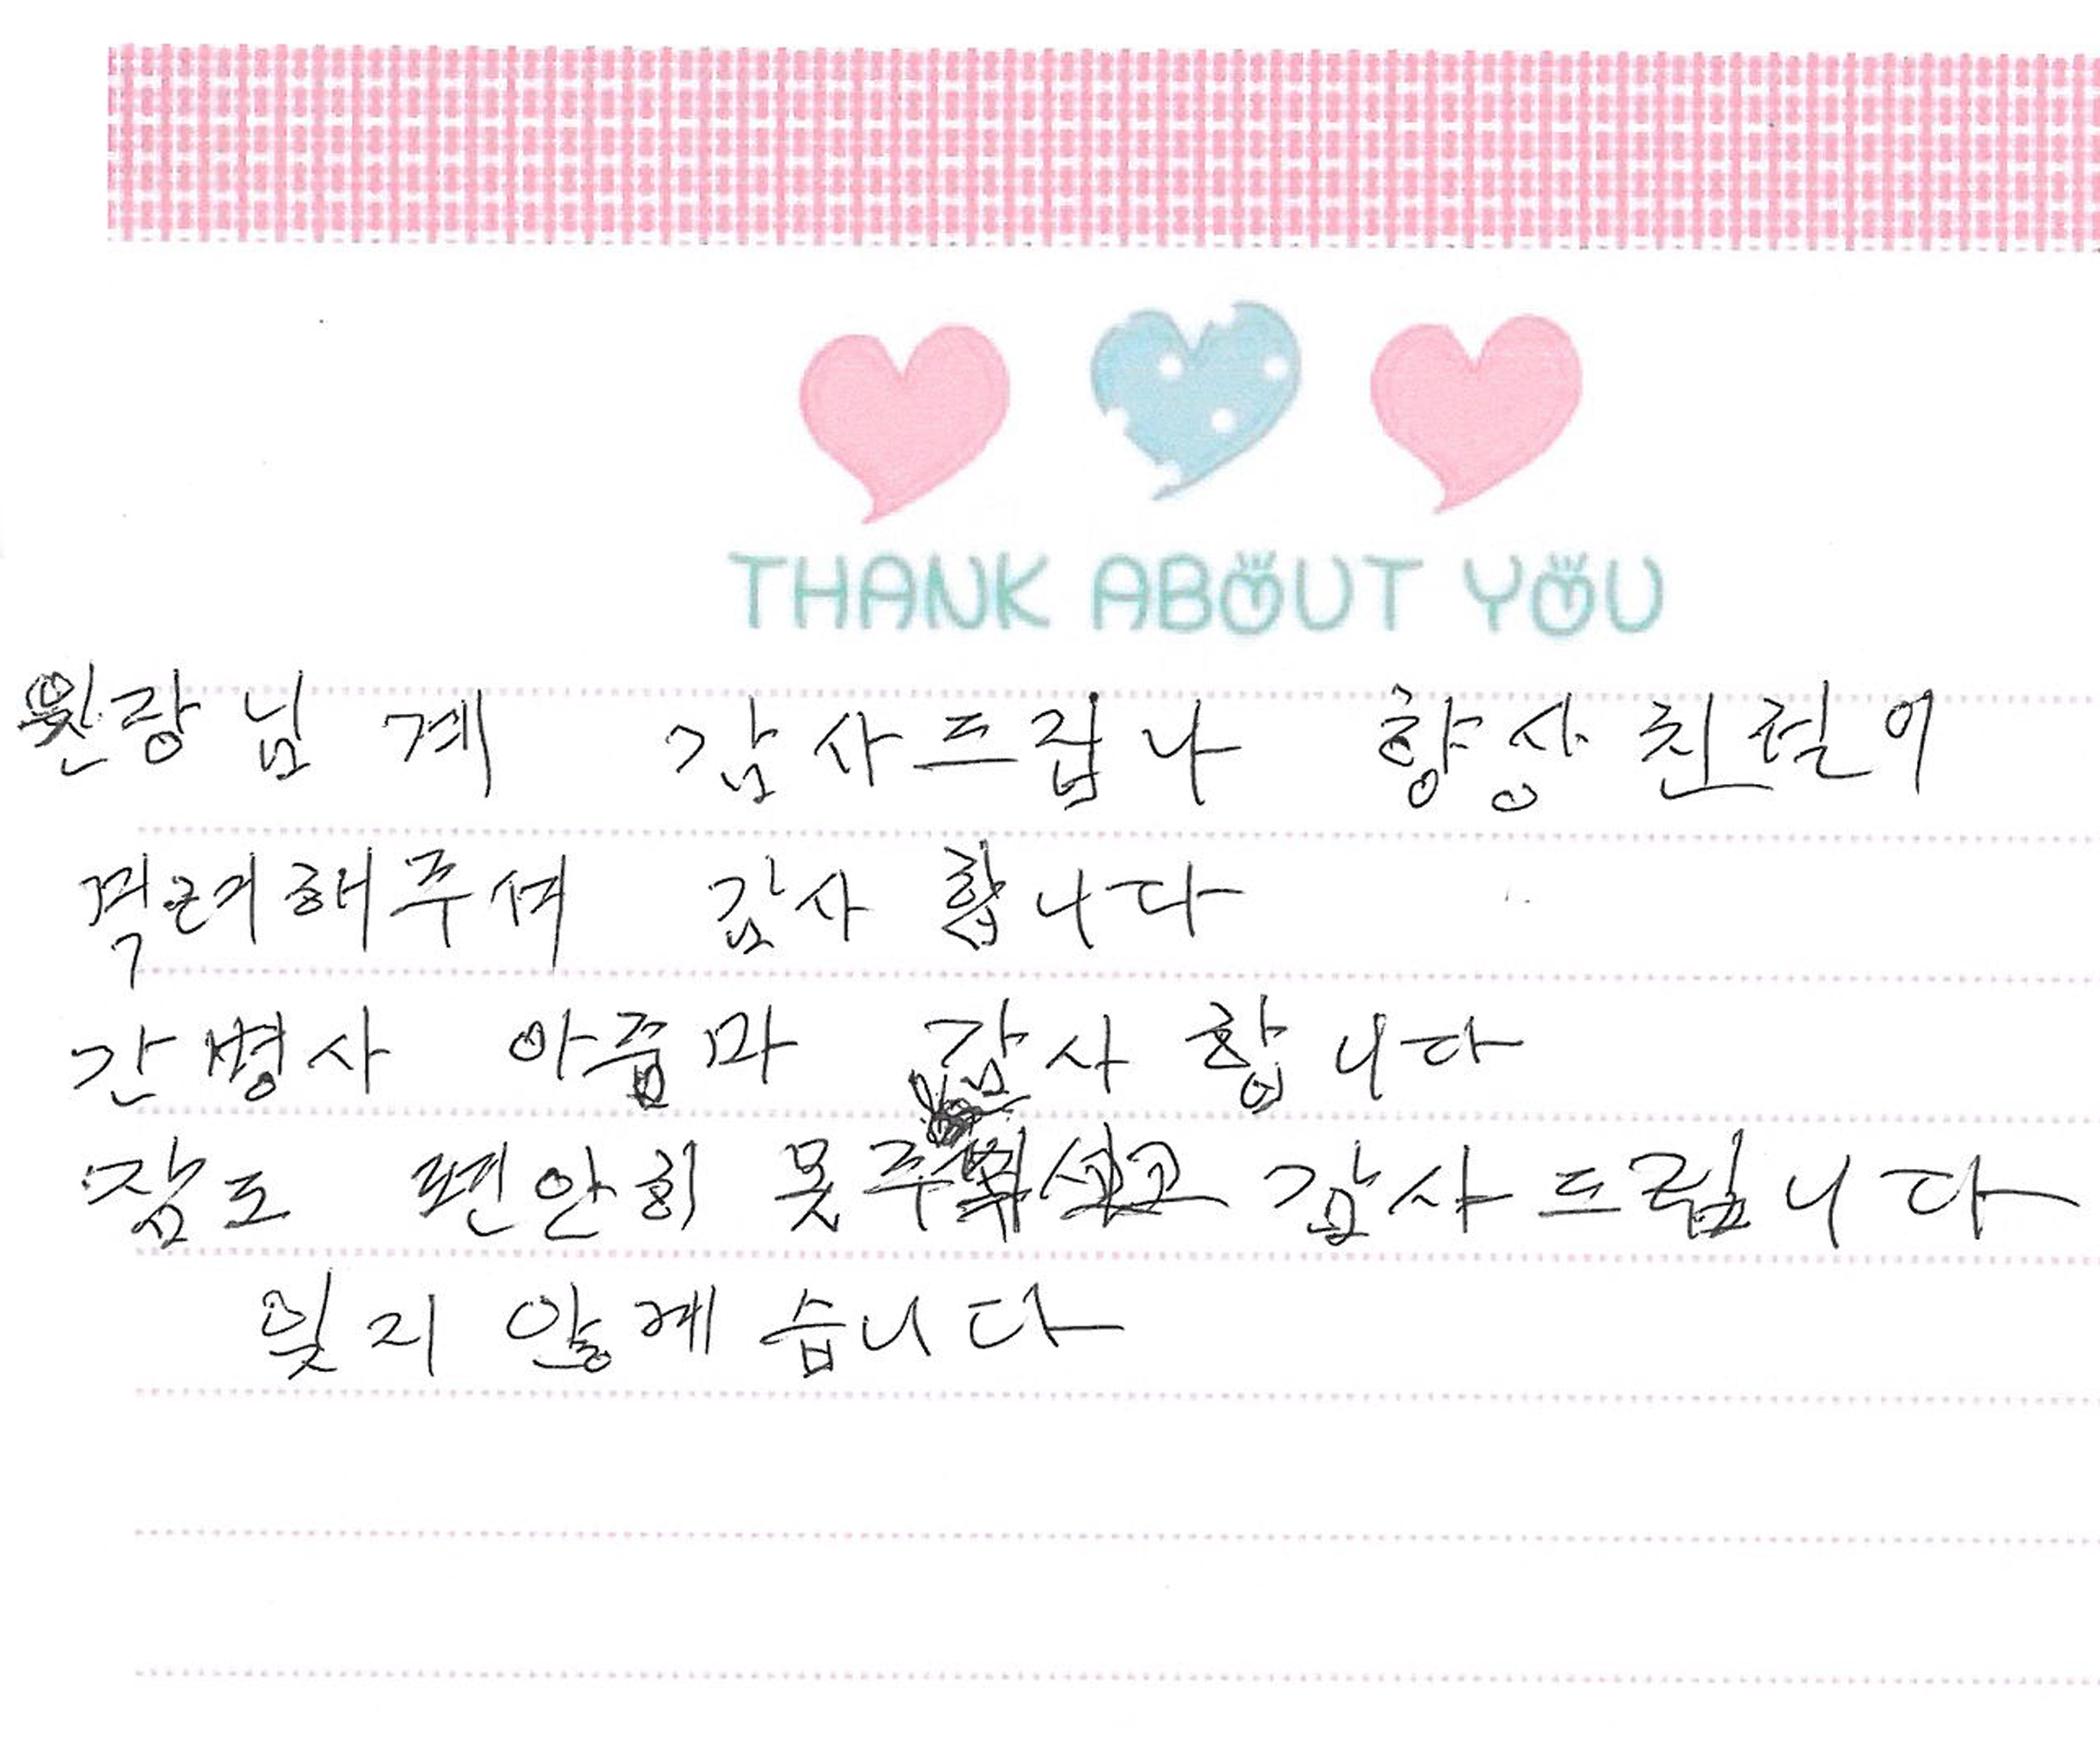 THANK ABOUT YOU
원장님 계 감사드립나 향상 친절이
격려해주셔 감사 합니다
간병사 아줌마 감사 합니다
잠도 편안히 못 감사드립니다
잊지 않게 습니다